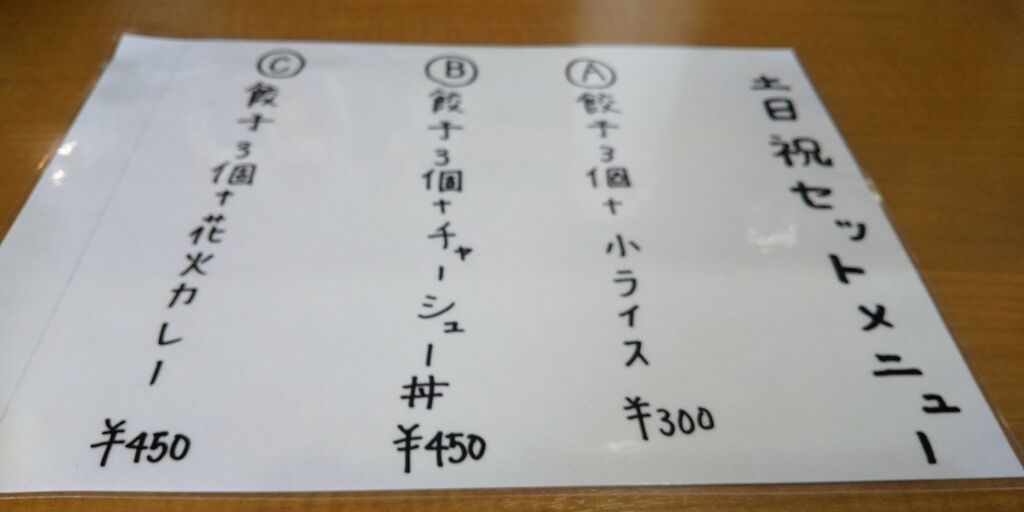 土日祝セットメニュー
Ⓐ餃子3個+小ライス ¥300
Ⓑ餃子3個+チャーシュー丼 ¥450
Ⓒ餃子3個+花火カレー ¥450